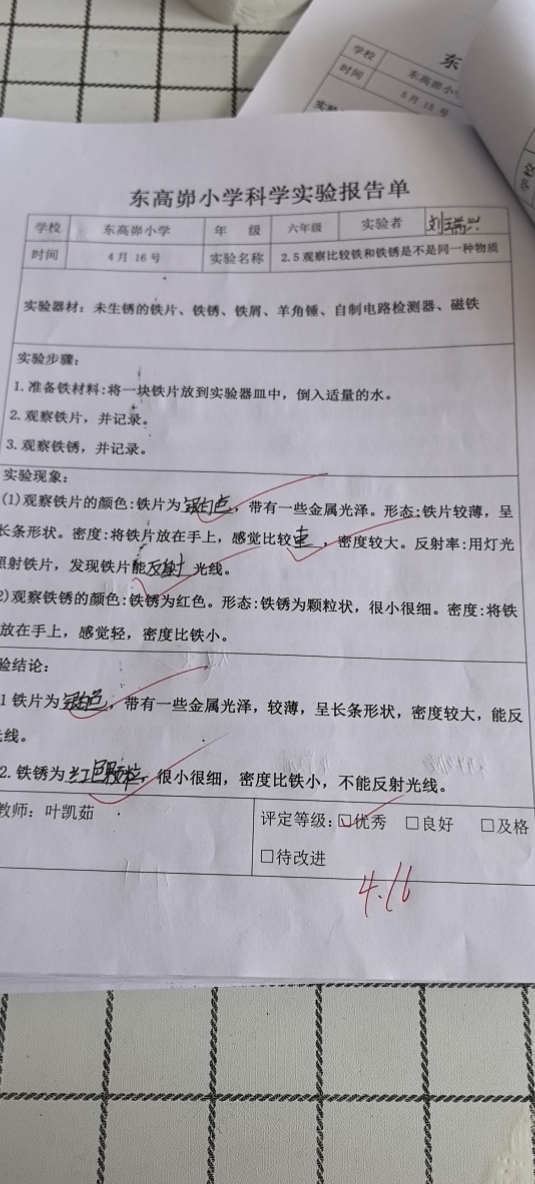 学校
东
时间
5月15号
东高峁小学科学实验报告单
学校 东高峁小学 年 级 六年级 实验者 刘瑞兴
时间 4月16号 实验名称 2.5观察比较铁和铁锈是不是同一种物质
实验器材：未生锈的铁片、铁锈、铁屑、羊角锤、自制电路检测器、磁铁
实验步骤：
1.准备铁材料：将一块铁片放到实验器皿中，倒入适量的水。
2.观察铁片，并记录。
3.观察铁锈，并记录。
实验现象：
(1)观察铁片的颜色：铁片为银白色，带有一些金属光泽。形态：铁片较薄，呈
长条形状。密度：将铁片放在手上，感觉比较重，密度较大。反射率：用灯光
照射铁片，发现铁片能反射光线。
2)观察铁锈的颜色：铁锈为红色。形态：铁锈为颗粒状，很小很细。密度：将铁
放在手上，感觉轻，密度比铁小。
验结论：
1 铁片为银白色，带有一些金属光泽，较薄，呈长条形状，密度较大，能反
光线。
2.铁锈为红色颗粒，很小很细，密度比铁小，不能反射光线。
教师：叶凯茹
评定等级：☐优秀 ☐良好 ☐及格
☐待改进
4.16